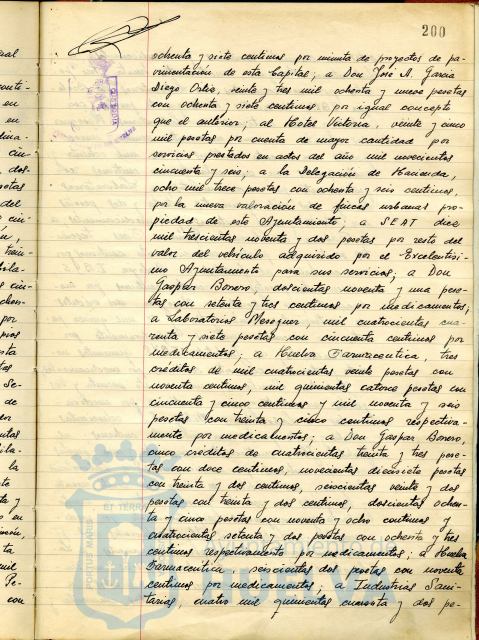 200
ochenta y siete centimos por minuta de proyectos de pa-
vimentación de esta Capital; a Don José A. Garcia
Diego Ortiz, veinte y tres mil ochenta y nueve pesetas
con ochenta y siete centimos, por igual concepto
que el anterior; al Hotel Victoria, veinte y cinco
mil pesetas por cuenta de mayor cantidad por
servicios prestados en actos del año mil novecientos
cincuenta y seis; a la Delegación de Hacienda,
ocho mil trece pesetas con ochenta y seis centimos,
por la nueva valoración de fincas urbanas pro-
piedad de este Ayuntamiento; a SEAT diez
mil trescientas noventa y dos pesetas por resto del
valor del vehículo adquirido por el Excelentísi-
mo Ayuntamiento para sus servicios; a Don
Gaspar Bonero, doscientas noventa y una pese-
tas con setenta y tres centimos por medicamentos;
a Laboratorios Meseguer, mil cuatrocientas cua-
renta y siete pesetas con cincuenta centimos por
medicamentos; a Huelva Farmaceutica, tres
créditos de mil cuatrocientas veinte pesetas con
noventa centimos; mil quinientas catorce pesetas con
cincuenta y cinco centimos y mil noventa y seis
pesetas con treinta y cinco centimos respectiva-
mente por medicamentos; a Don Gaspar Bonero,
cinco créditos de cuatrocientas treinta y tres pese-
tas con doce centimos, novecientas diecisiete pesetas
con treinta y dos centimos, seiscientas veinte y dos
pesetas con treinta y dos centimos, doscientas ochen-
ta y cinco pesetas con noventa y ocho centimos y
cuatrocientas setenta y dos pesetas con ochenta y tres
centimos respectivamente por medicamentos; a Huelva
Farmaceutica, seiscientas dos pesetas con noventa
centimos por medicamentos; a Industrias Sani-
tarias, cuatro mil quinientas cuarenta y dos pe-